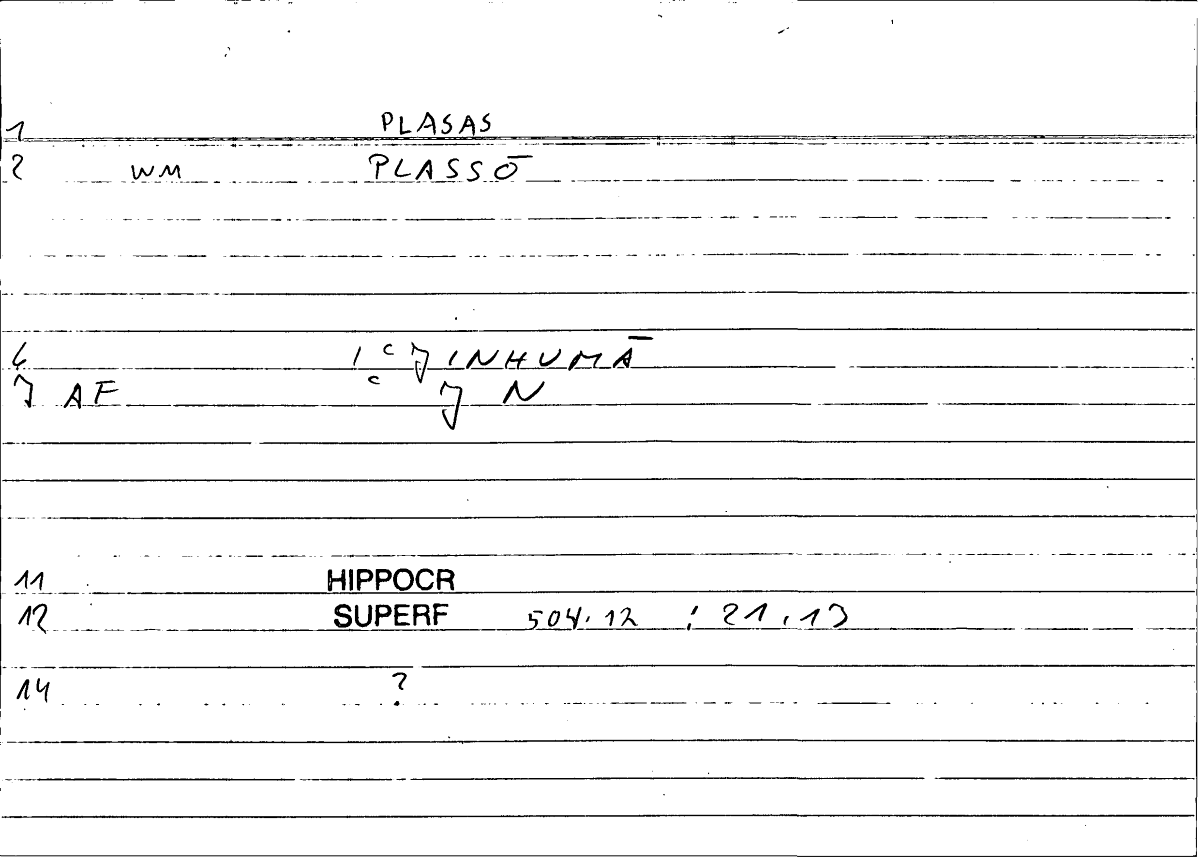 1 PLASAS
2 WM PLASSŌ
6 1 INHUMĀ
7 AF N
11 HIPPOCR
12 SUPERF 504.12 : 21.13
14 ?